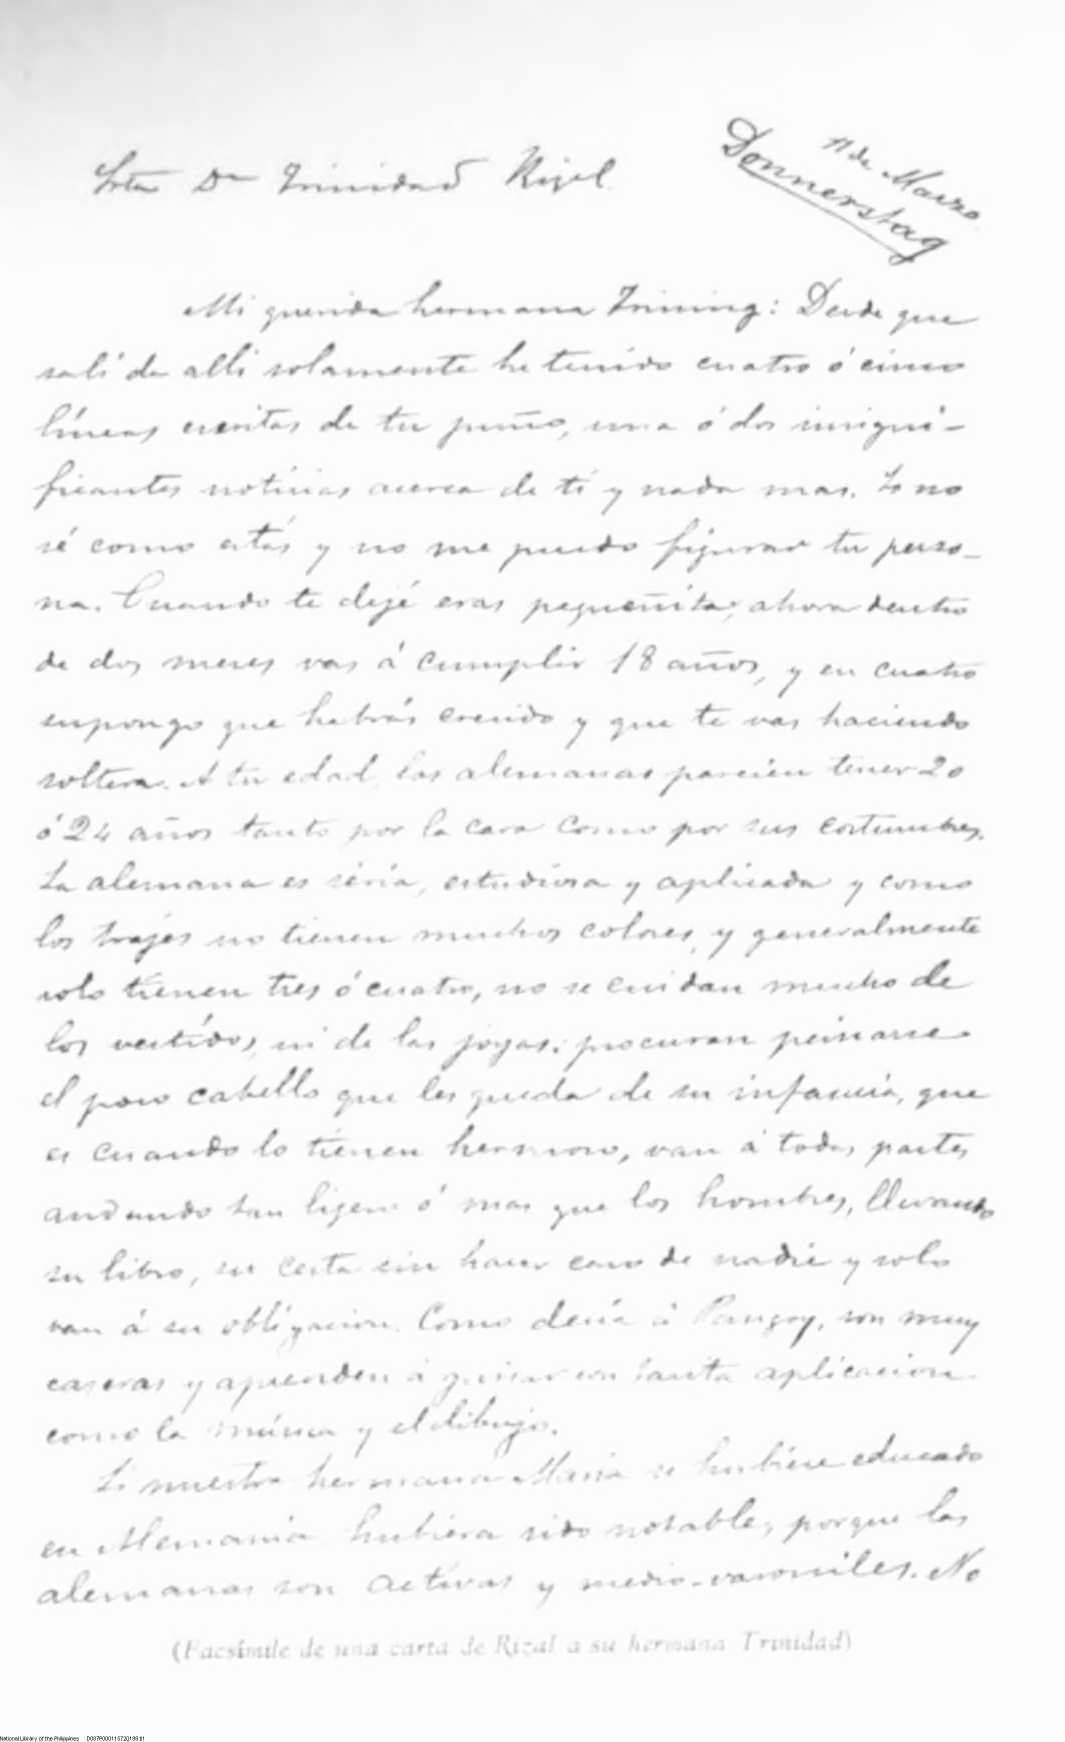 Srta Dña Trinidad Rizal
11 de Marzo
Donnerstag
Mi querida hermana Trining: Desde que
salí de allí solamente he tenido cuatro ó cinco
líneas escritas de tu puño, una ó dos insigni-
ficantes noticias acerca de ti y nada mas. Yo no
sé como estás y no me puedo figurar tu perso-
na. Cuando te dejé eras pequeñita, ahora dentro
de dos meses vas á cumplir 18 años, y en cuatro
supongo que habrás crecido y que te vas haciendo
soltera. A tu edad, las alemanas parecen tener 20
ó 24 años tanto por la cara como por sus costumbres.
La alemana es séria, estudiosa y aplicada y como
los trajes no tienen muchos colores, y generalmente
solo tienen tres ó cuatro, no se cuidan mucho de
los vestidos, ni de las joyas; procuran peinarse
el poco cabello que les queda de su infancia, que
es cuando lo tienen hermoso, van á todas partes
andando tan ligero ó mas que los hombres, llevando
su libro, su cesta sin hacer caso de nadie y solo
van á su obligacion. Como decía á Pangoy, son muy
caseras y aprenden á guisar con tanta aplicacion
como la música y el dibujo.
Si nuestra hermana Maria se hubiese educado
en Alemania hubiera sido notable, porque las
alemanas son activas y medio-varoniles. No
(Facsímile de una carta de Rizal a su hermana Trinidad)
National Library of the Philippines